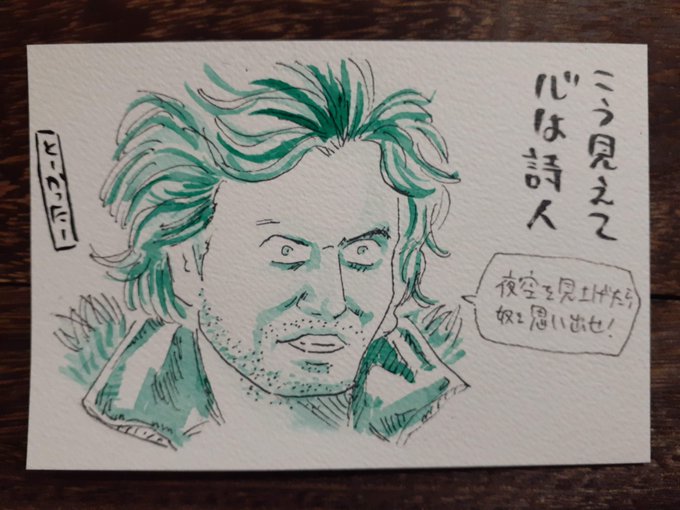 こう見えて
心は詩人
夜空を見上げたら
奴を思い出せ!